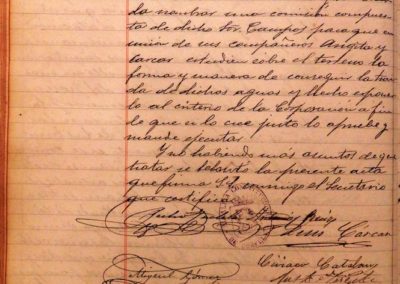 da nombrar una comision compues-
ta de dicho Sor. Campos para que en
union de sus compañeros Angita y
Carcar estudien sobre el terreno la
forma y manera de conseguir la trai-
da de dichas aguas y hecho expone
lo al criterio de la Corporacion a fin
de que si lo cree justo lo apruebe y
mande ejecutar.
Y no habiendo más asuntos de que
tratar se levantó la presente acta
que firma S.S. conmigo el Secretario
que certifico.
Luis Carcar
Miguel Gómez
Ciriaco Catalan